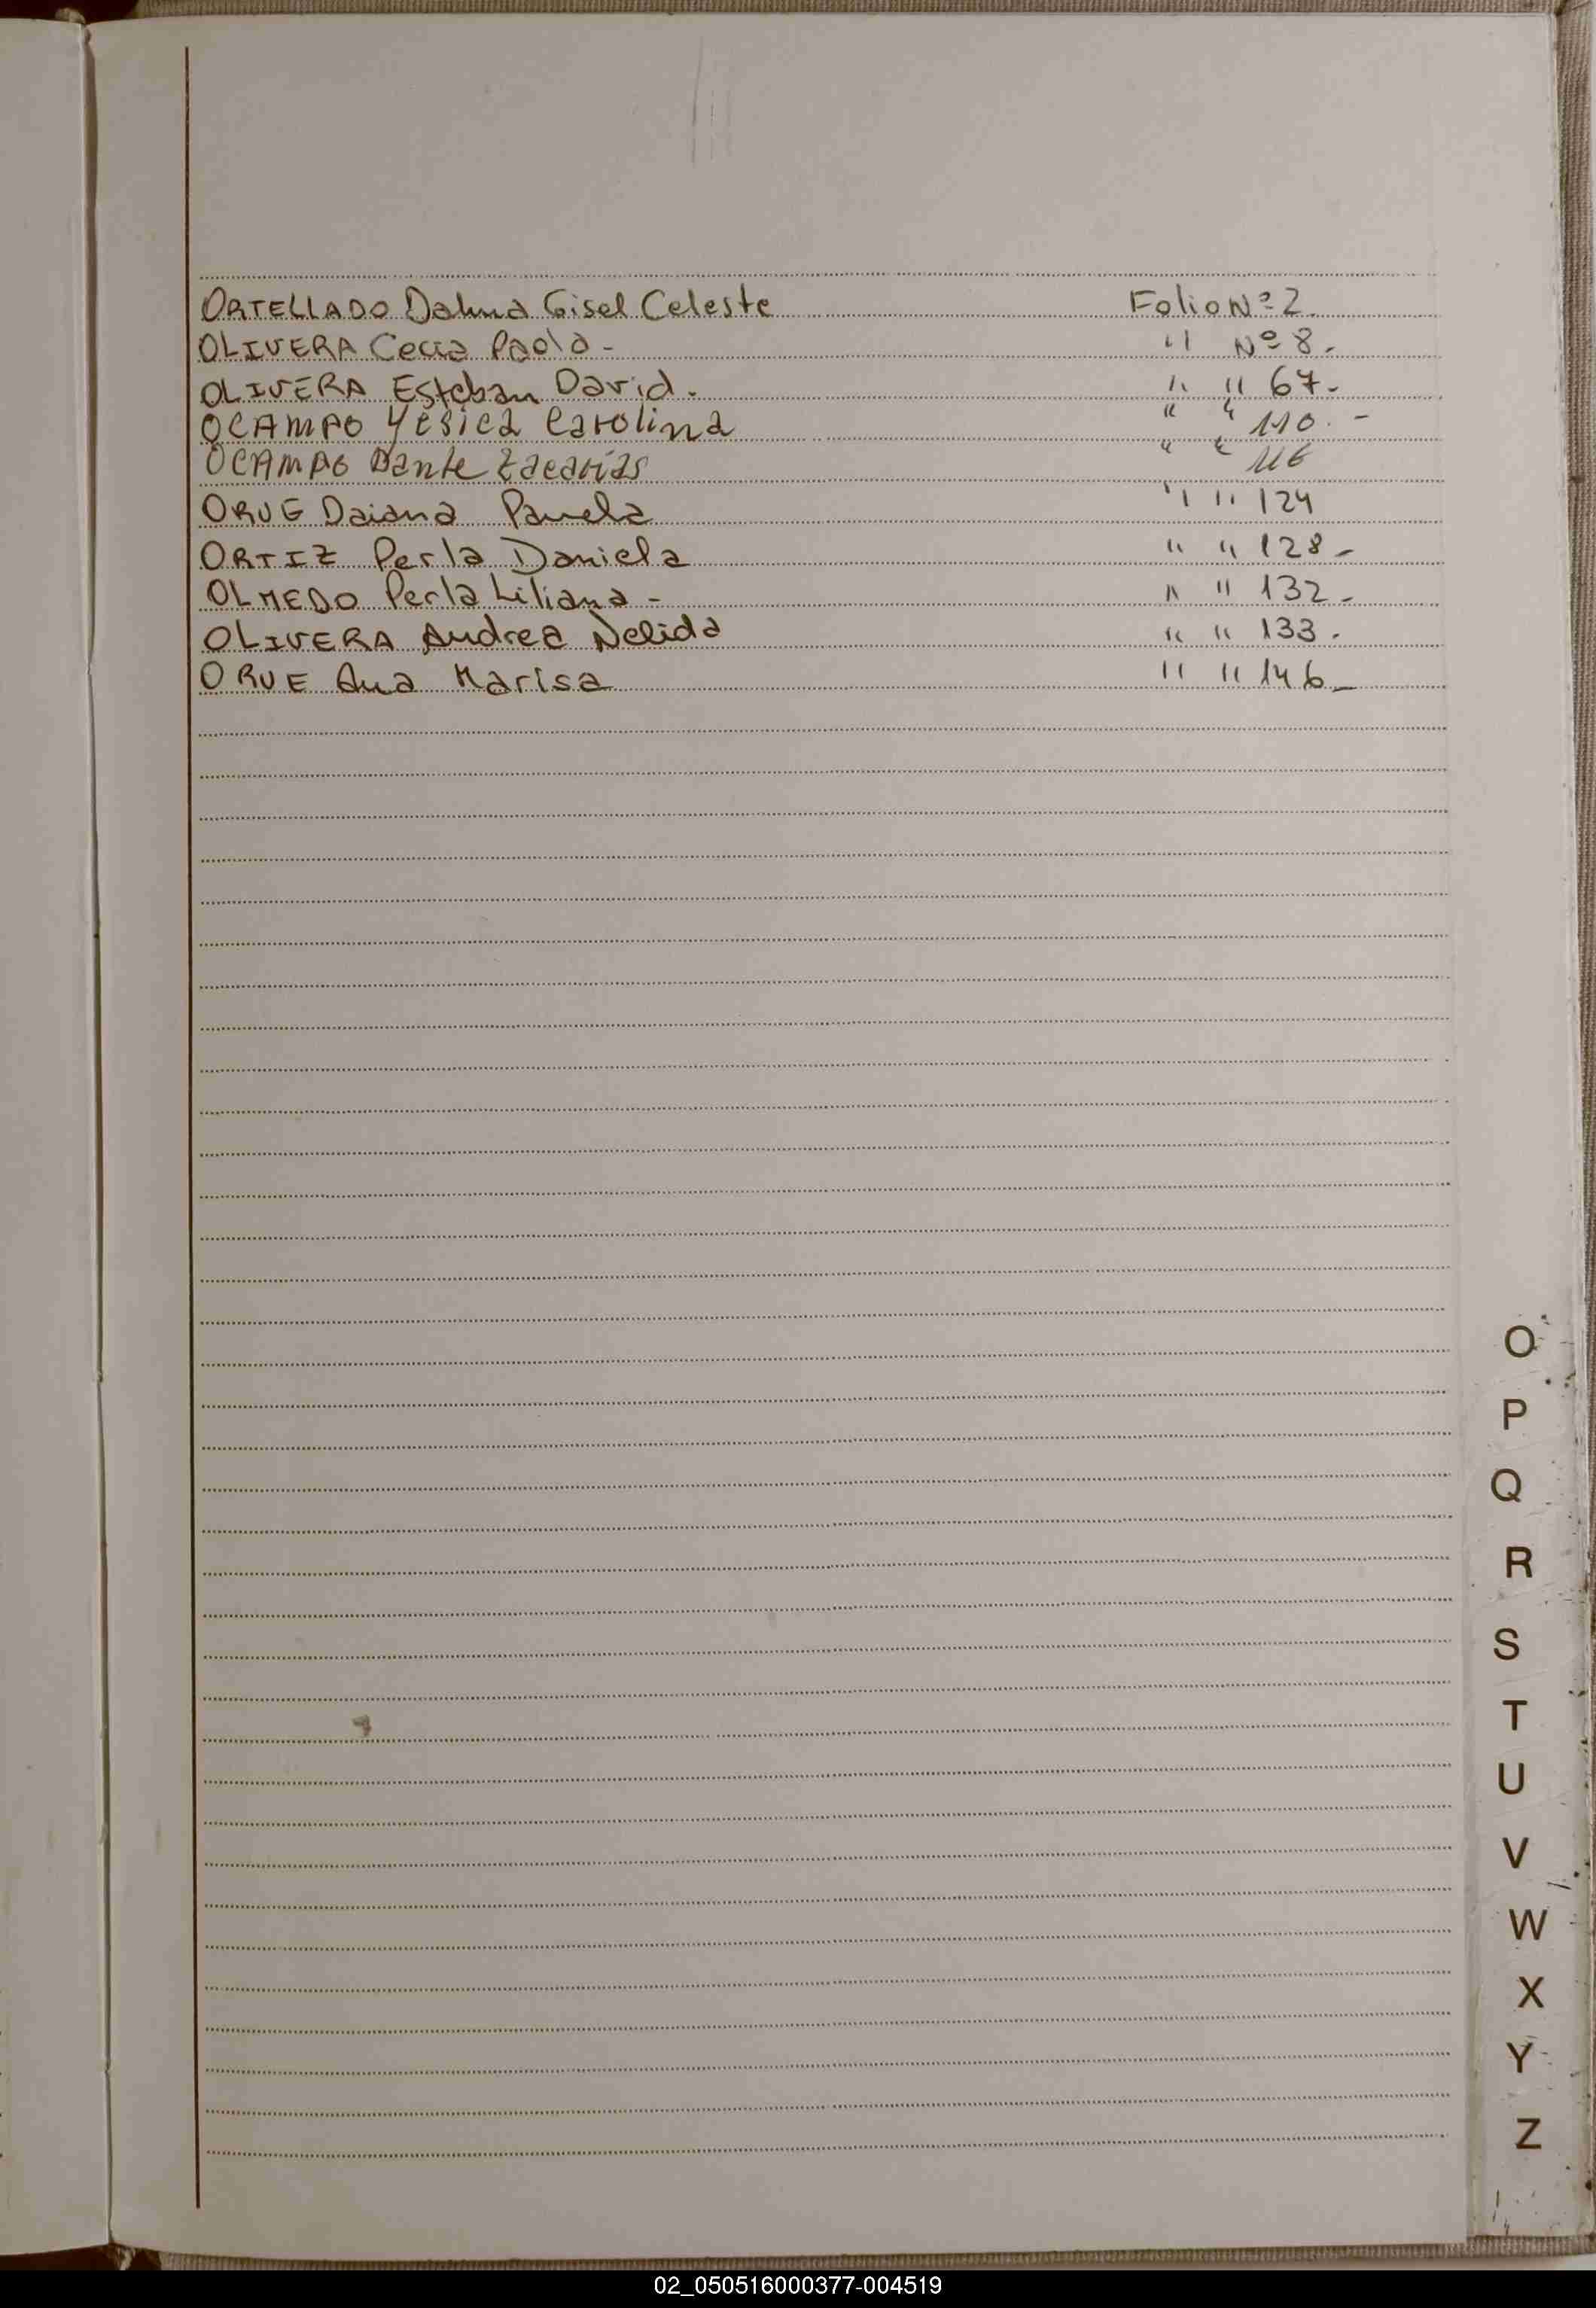 ORTELLADO Dalma Gisel Celeste Folio Nº 2.
OLIVERA Cecia Paola - " Nº 8.
OLIVERA Esteban David. " " 67-
OCAMPO Yesica Carolina " " 110.-
OCAMPO Dante Zacarías " " 116
ORUE Daiana Pamela " " 124
ORTIZ Perla Daniela " " 128-
OLMEDO Perla Liliana - " " 132-
OLIVERA Andrea Nelida " " 133.
ORUE Ana Marisa " " 146-
O
P
Q
R
S
T
U
V
W
X
Y
Z
02_050516000377-004519